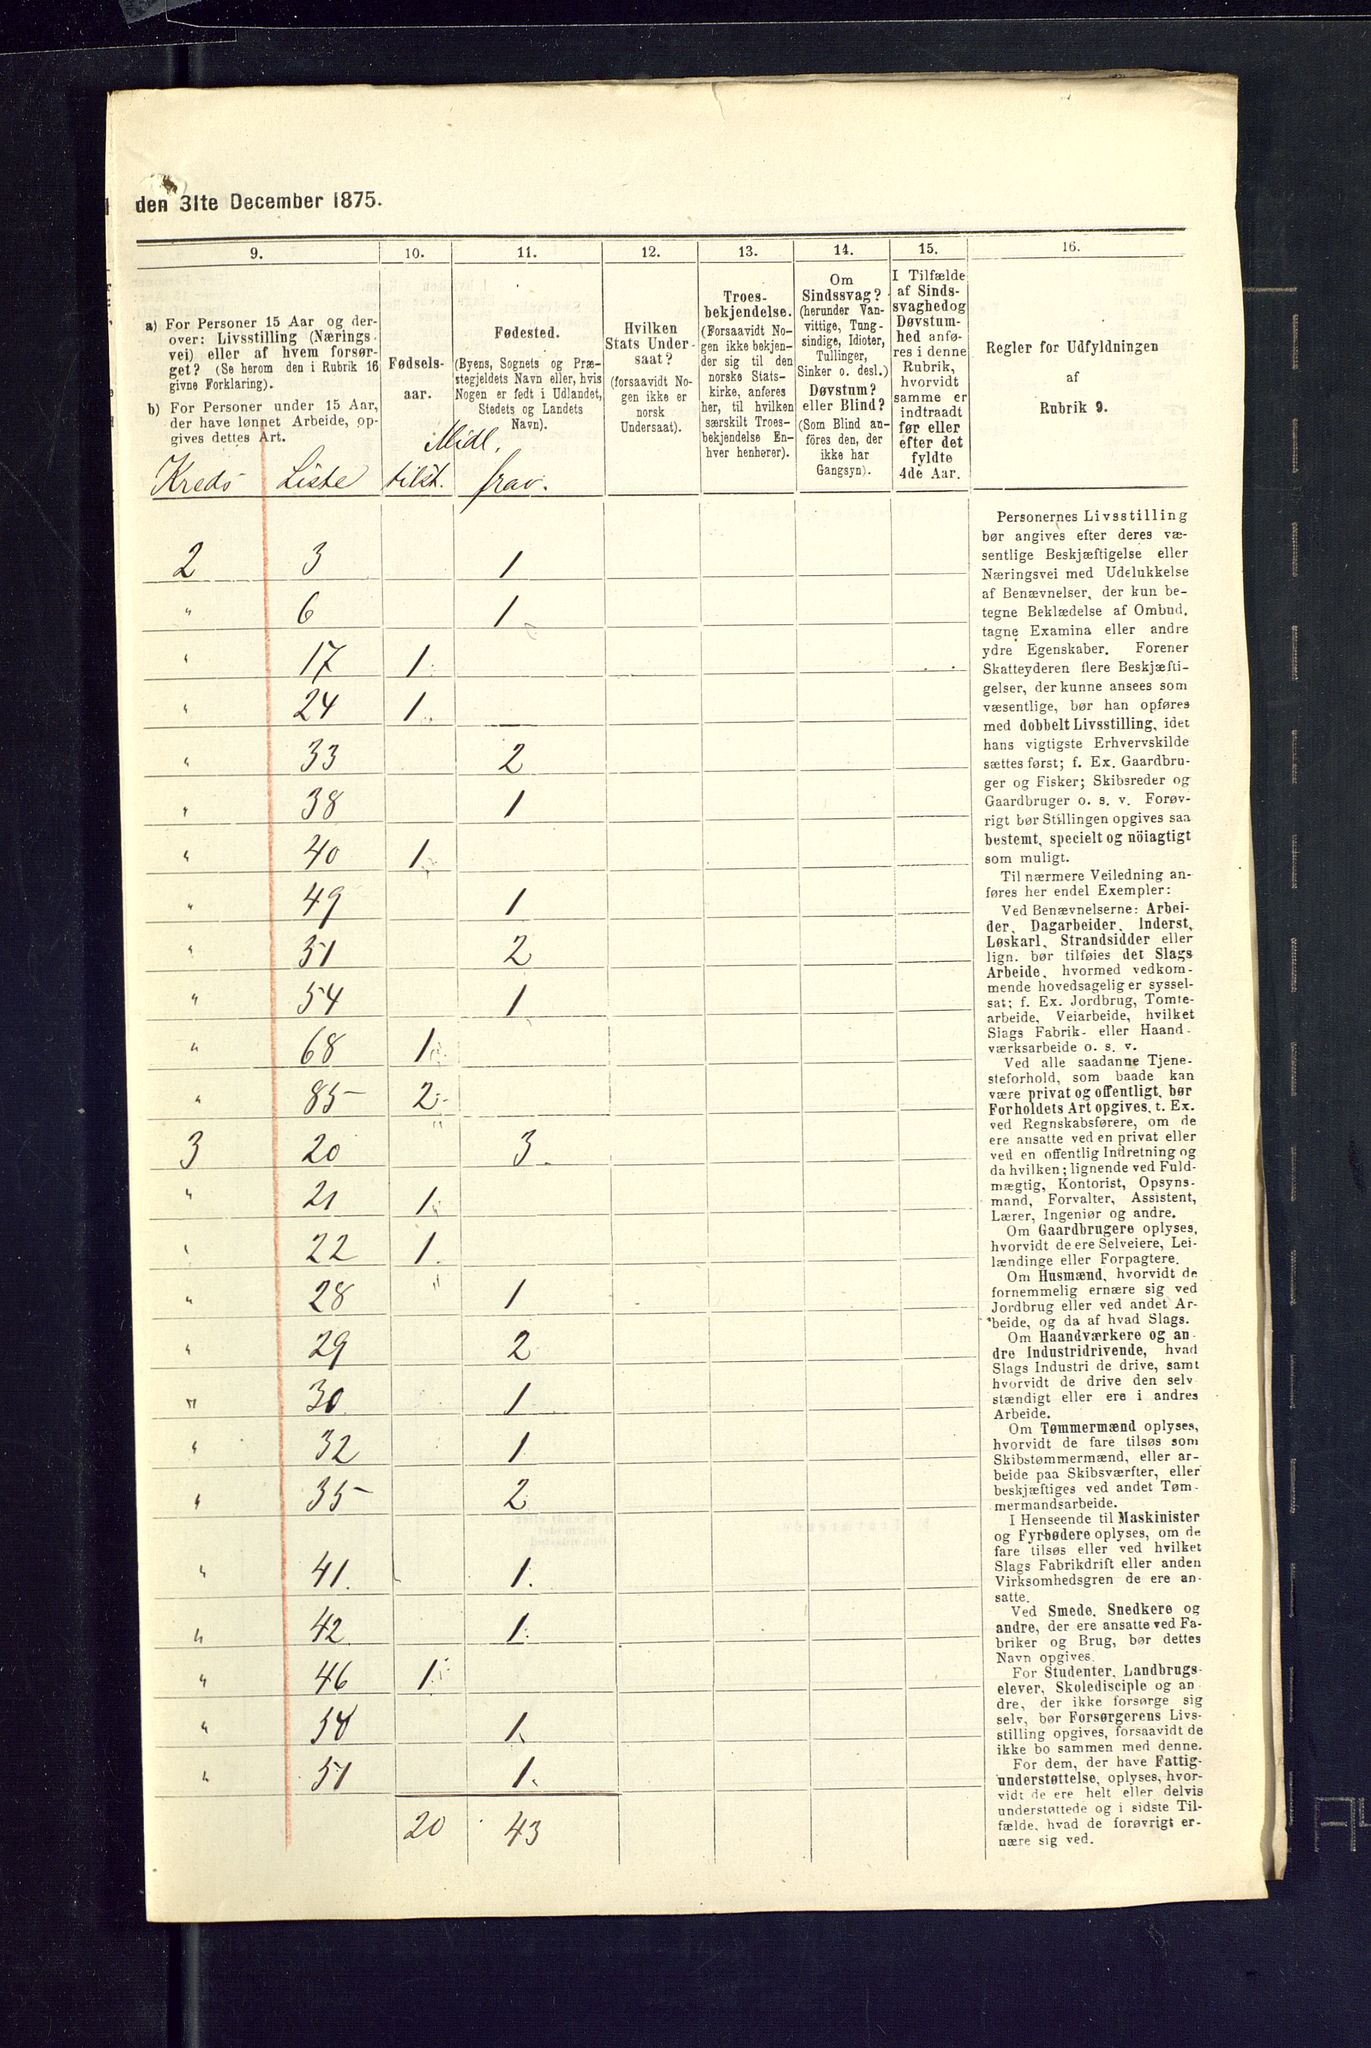 den 31te December 1875.
9. 10. 11. 12. 13. 14. 15. 16.
a) For Personer 15 Aar og der-
over: Livsstilling (Nærings-
vei) eller af hvem forsør-
get? (Se herom den i Rubrik 16
givne Forklaring).
b) For Personer under 15 Aar,
der have lønnet Arbeide, op-
gives dettes Art.
Fødselsaar-
aar.
Fødested.
(Byens, Sognets og Præ-
stegjeldets Navn eller, hvis
Nogen er født i Udlandet,
Stedets og Landets
Navn).
Hvilken
Stats Under-
saat?
(forsaavidt No-
gen ikke er
norsk
Undersaat).
Troes-
bekjendelse.
(Forsaavidt No-
gen ikke bekjen-
der sig til den
norske Stats-
kirke, anføres
her, til hvilken
særskilt Troes-
bekjendelse En-
hver henhører).
Om
Sindssvag?
(herunder Van-
vittige, Tung-
sindige, Idioter,
Tullinger,
Sinker o. desl.)
Døvstum?
eller Blind?
(Som Blind an-
føres den, der
ikke har
Gangsyn).
I Tilfælde
af Sinds-
svaghed og
Døvstum-
hed anfø-
res i denne
Rubrik,
hvorvidt
samme er
indtraadt
før eller
efter det
fyldte
4de Aar.
Regler for Udfyldningen
af
Rubrik 9.
Midl.
Kreds Liste tilst. frav.
2 3 1
" 6 1
" 17 1
" 24 1
" 33 2
" 38 1
" 40 1
" 49 1
" 51 2
" 54 1
" 68 1
" 85 2
3 20 3
" 21 1
" 22 1
" 28 1
" 29 2
" 30 1
" 32 1
" 35 2
" 41. 1.
" 42 1
" 46 1
" 50 1
" 51 1
20 43
Personernes Livsstilling
bør angives efter deres væ-
sentlige Beskjæftigelse eller
Næringsvei med Udelukkelse
af Benævnelser, der kun be-
tegne Beklædelse af Ombud,
tagne Examina eller andre
ydre Egenskaber. Forener
Skatteyderen flere Beskjæfti-
gelser, der kunne ansees som
væsentlige, bør han opføres
med dobbelt Livsstilling, idet
hans vigtigste Erhvervskilde
sættes først; f. Ex. Gaardbru-
ger og Fisker; Skibsreder og
Gaardbruger o. s. v. Forøv-
rigt bør Stillingen opgives saa
bestemt, specielt og nöiagtigt
som muligt.
Til nærmere Veiledning an-
føres her endel Exempler:
Ved Benævnelserne: Arbei-
der, Dagarbeider, Inderst,
Løskarl, Strandsidder eller
lign. bør tilføies det Slags
Arbeide, hvormed vedkom-
mende hovedsagelig er syssel-
sat; f. Ex. Jordbrug, Tomte-
arbeide, Veiarbeide, hvilket
Slags Fabrik- eller Haand-
værksarbeide o. s. v.
Ved alle saadanne Tjene-
steforhold, som baade kan
være privat og offentligt, bør
Forholdets Art opgives, t. Ex.
ved Regnskabsførere, om de
ere ansatte ved en privat eller
ved en offentlig Indretning og
da hvilken; lignende ved Fuld-
mægtig, Kontorist, Opsyns-
mand, Forvalter, Assistent,
Lærer, Ingeniør og andre.
Om Gaardbrugere oplyses,
hvorvidt de ere Selveiere, Lei-
lændinge eller Forpagtere.
Om Husmænd, hvorvidt de
fornemmelig ernære sig ved
Jordbrug eller ved andet Ar-
beide, og da af hvad Slags.
Om Haandværkere og an-
dre Industridrivende, hvad
Slags Industri de drive, samt
hvorvidt de drive den selv-
stændigt eller ere i andres
Arbeide.
Om Tømmermænd oplyses,
hvorvidt de fare tilsøs som
Skibstømmermænd, eller ar-
beide paa Skibsværfter, eller
beskjæftiges ved andet Tøm-
mermandsarbeide.
I Henseende til Maskinister
og Fyrbødere oplyses, om de
fare tilsøs eller ved hvilket
Slags Fabrikdrift eller anden
Virksomhedsgren de ere an-
satte.
Ved Smede, Snedkere og
andre, der ere ansatte ved Fa-
briker og Brug, bør dettes
Navn opgives.
For Studenter, Landbrugs-
elever, Skoledisciple og an-
dre, der ikke forsørge sig
selv, bør Forsørgerens Livs-
stilling opgives, forsaavidt de
ikke bo sammen med denne.
For dem, der have Fattig-
understøttelse, oplyses, hvor-
vidt de ere helt eller delvis
understøttede og i sidste Til-
fælde, hvad de forøvrigt er-
nære sig ved.